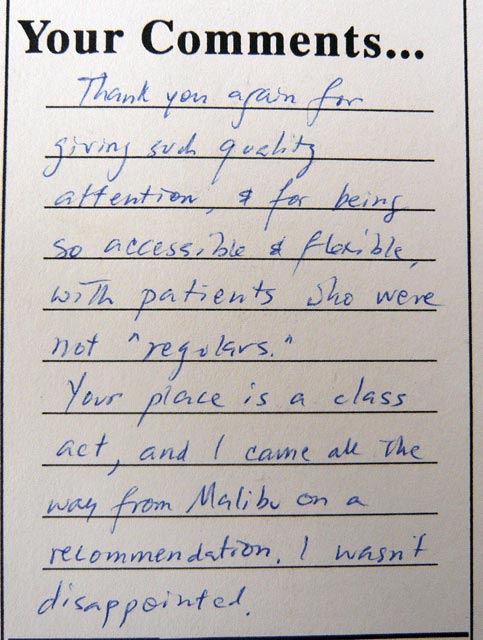 Your Comments...
Thank you again for
giving such quality
attention, & for being
so accessible & flexible,
with patients who were
not "regulars."
Your place is a class
act, and I came all the
way from Malibu on a
recommendation. I wasn't
disappointed.